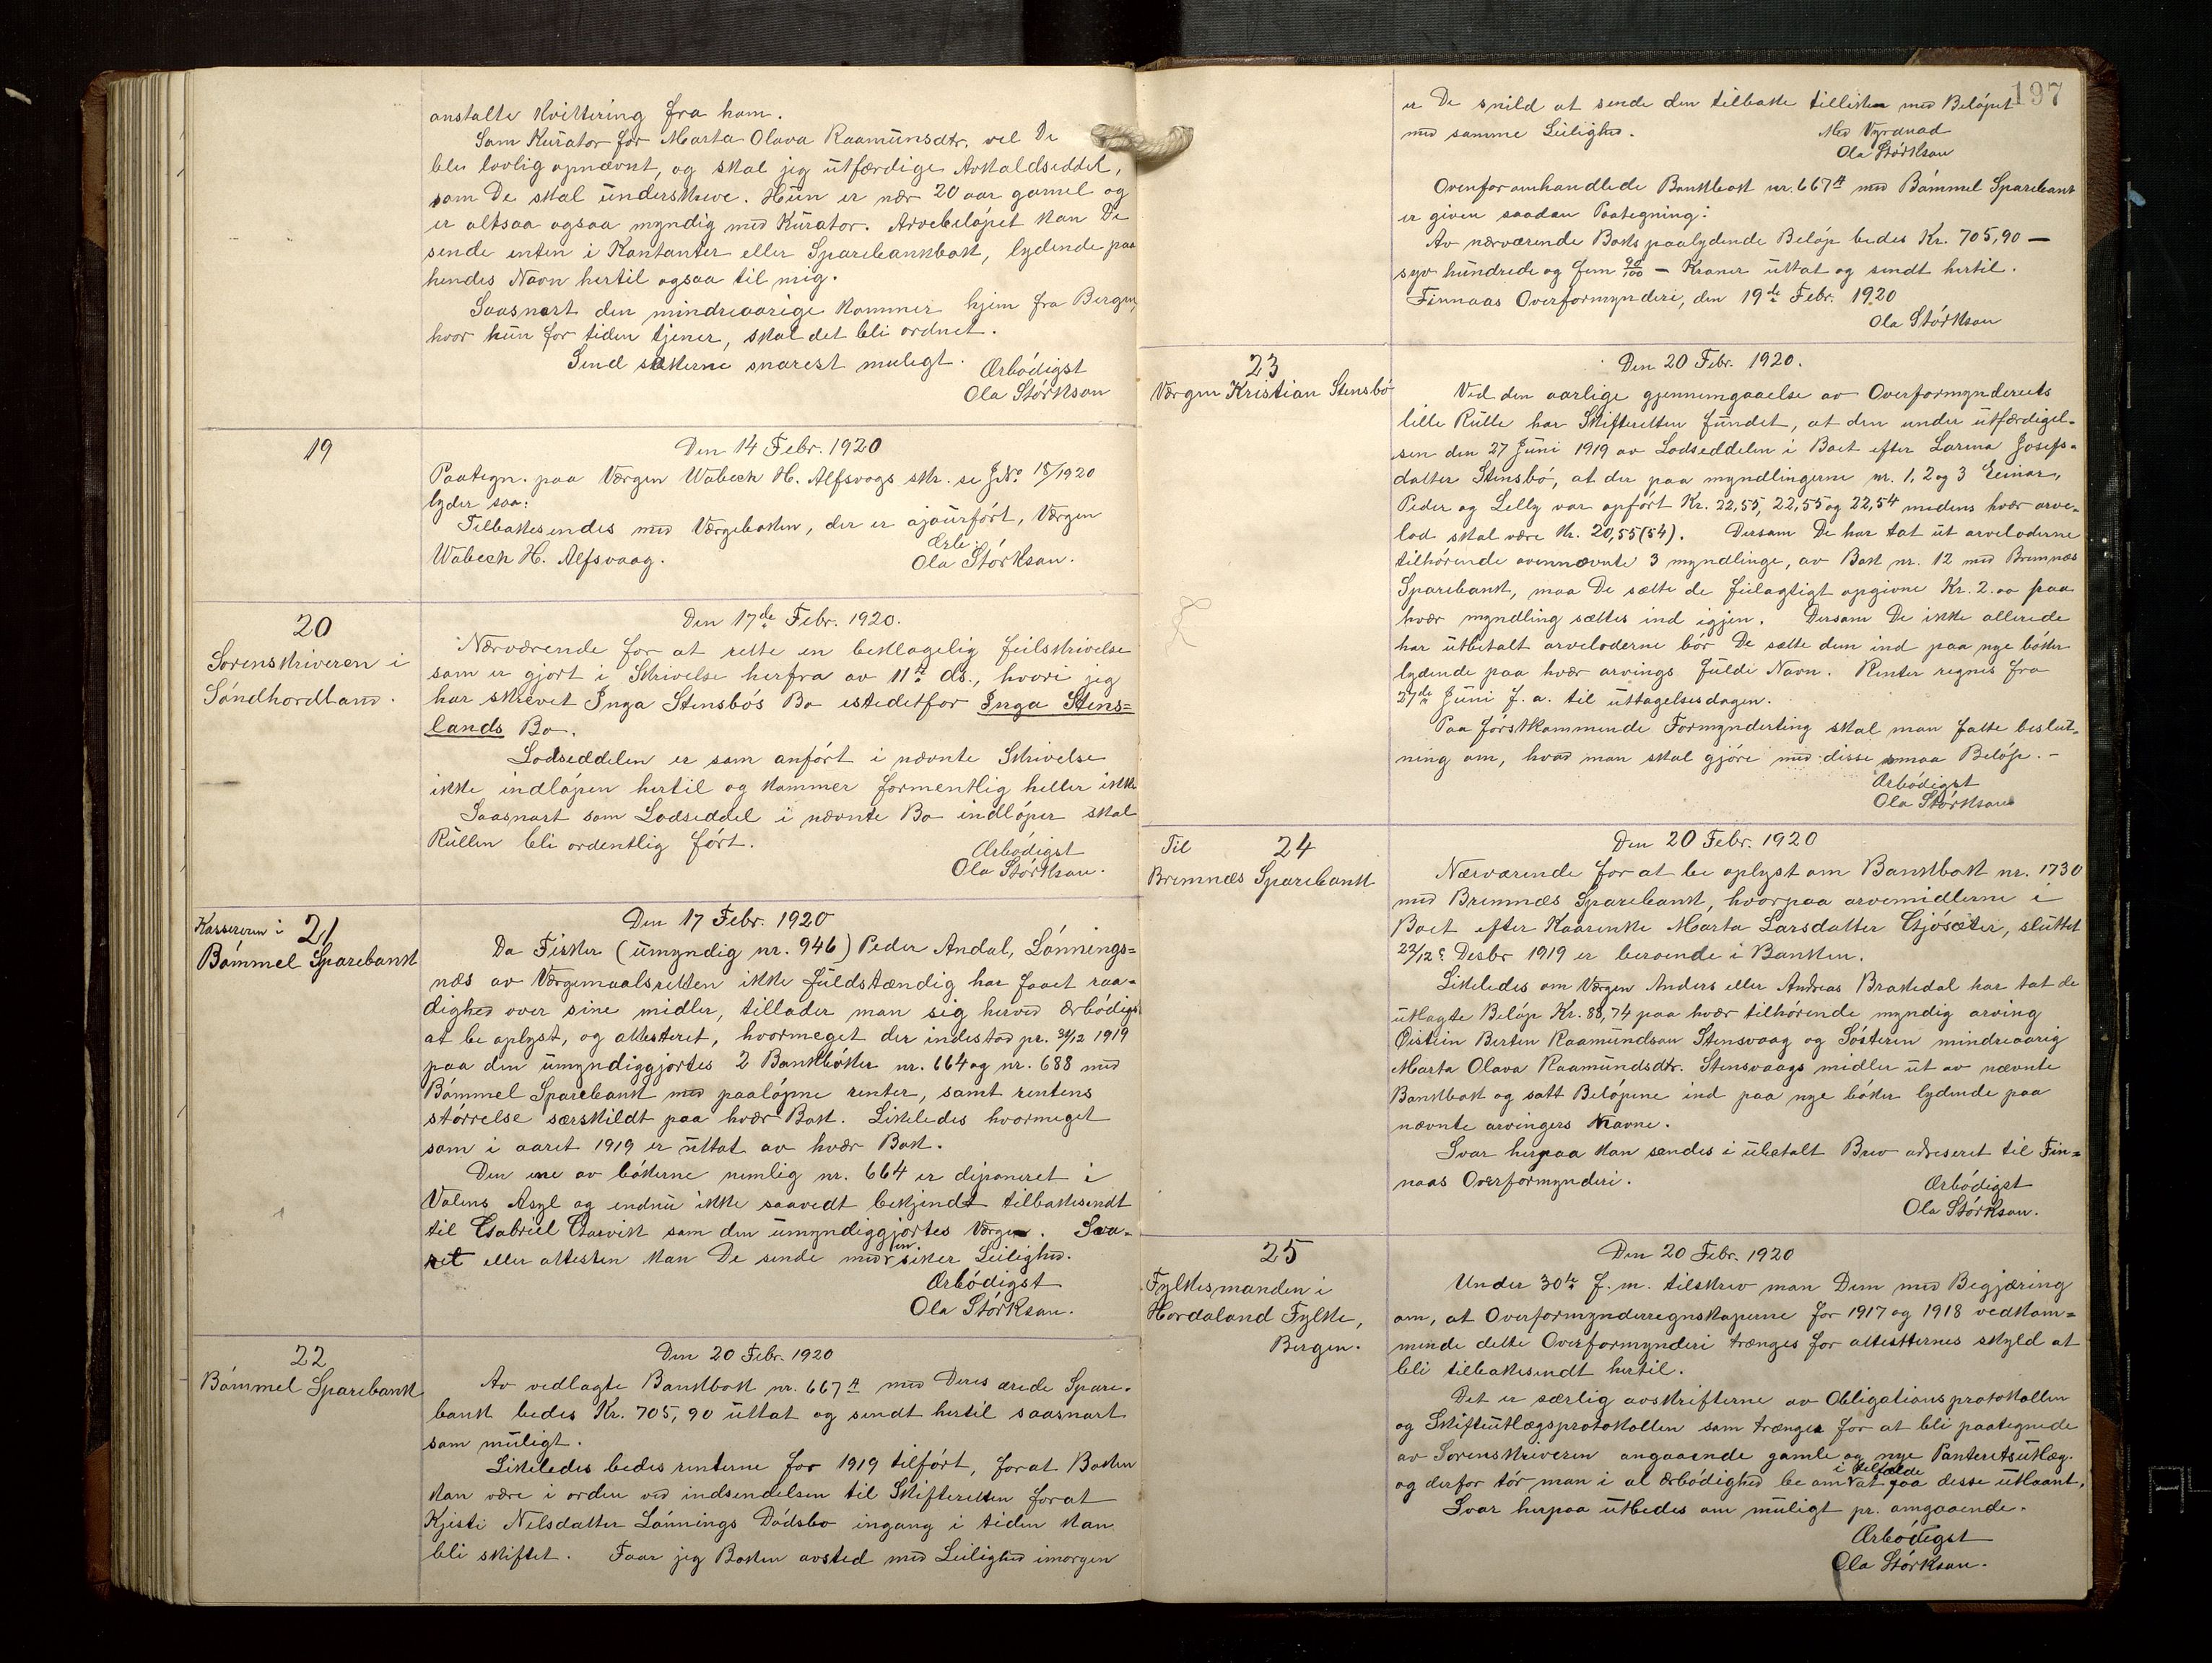 anstalte Kvittering fra ham.
Som Kurator for Marta Olava Raamunsdtr. vel De
blir lovlig opnævnt, og skal jeg utfærdige Avkaldseddel,
som De skal underskrive. Hun er nær 20 aar gamel og
er altsaa ogsaa myndig med Kurator. Arvebeløpet kan De
sende enten i Kontanter eller Sparebankbok, lydende paa
hendes Navn hertil ogsaa til mig.
Saasnart den mindreaarige kommer hjem fra Bergen,
hvor hun for tiden tjener, skal det bli ordnet.
Send sakerne snarest muligt.
Ærbødigst
Ola Størkson
19
Den 14 Febr. 1920
Paategn. paa Værgen Wabeck H. Alfsvogs skr. se J.No. 15/1920
lyder saa:
Tilbakesendes med Værgeboken, der er ajourført, Værgen
Wabeck H. Alfsvaag.
Ærb.
Ola Størkson.
20
Sorenskriveren i
Søndhordland.
Den 17de Febr. 1920.
Nærværende for at rette en beklagelig feilskrivelse
som er gjort i Skrivelse herfra av 11te ds., hvori jeg
har skrevet Inga Stensbøs Bo istedetfor Inga Stens=
lands Bo.
Lodseddelen er som anført i nævnte Skrivelse
ikke indløpen hertil og kommer formentlig heller ikke
Saasnart som Lodseddel i nævnte Bo indløper skal
Rullen bli ordentlig ført.
Ærbødigst
Ola Størkson.
Kassereren i 21
Bømmel Sparebank
Den 17 Febr. 1920
Da Fisker (umyndig nr. 946) Peder Andal, Lønnings=
nes av Værgemaalsretten ikke fuldstændig har faaet raa-
dighed over sine midler, tillader man sig herved ærbødigst
at be oplyst, og attesteret, hvormeget der indestod pr. 31/12 1919
paa den umyndiggjortes 2 Bankbøker nr. 664 og nr. 688 med
Bømmel Sparebank med paaløpne renter, samt rentens
størrelse særskildt paa hvær Bok. Likeledes hvormeget
som i aaret 1919 er uttat av hvær Bok.
Den ene av bøkerne nemlig nr. 664 er diponeret i
Valens Asyl og endnu ikke saavedt bekjendt tilbakesendt
til Gabriel Gasvik som den umyndiggjortes Værge. Sva-
ret eller attesten kan De sende med en siker Leilighed.
Ærbødigst
Ola Størkson.
22
Bømmel Sparebank
Den 20 Febr. 1920
Av vedlagte Bankbok nr. 667 A med Deres ærede Spare-
bank bedes Kr. 705,90 uttat og sendt hertil saasnart
som muligt.
Likeledes bedes renterne for 1919 tilført, forat Boken
kan være i orden ved indsendelsen til Skifteretten forat
Kjisti Nelsdatter Lønnings Dødsbo ingang i tiden kan
bli skiftet. Faar jeg Boken avsted med Leilighed imorgen
197
er De snild at sende den tilbake tillikem med Beløpet
med samme Leilighed.
Med Vyrdnad
Ola Størkson
Ovenfor omhandlede Bankbok nr. 667 A med Bømmel Sparebank
er given saadan Paategning:
Av nærværende Boks paalydende Beløp bedes Kr. 705,90 —
syv hundrede og fem 90/100 — Kroner uttat og sendt hertil.
Finnaas Overformynderi, den 19de Febr. 1920
Ola Størkson
23
Værgen Kristian Stensbø
Den 20 Febr. 1920.
Ved den aarlige gjennemgaaelse av Overformynderiets
lille Rulle har Skifteretten fundet, at den under utfærdigel-
sen den 27 Juni 1919 av Lodseddelen i Boet efter Larina Josefs-
datter Stensbø, at der paa myndlingerne nr. 1, 2 og 3 Einar,
Peder og Lelly var opført Kr. 22,55, 22,55 og 22,54 medens hvær arve-
lod skal være Kr. 20,55(54). Dersom De har tat ut arveloderne
tilhørende ovennævnte 3 myndlinge, av Bok nr. 12 med Bremnæs
Sparebank, maa De sætte de feilagtigt opgivne Kr. 2.00 paa
hvær myndling sættes ind igjen. Dersom De ikke allerede
har utbetalt arveloderne bør De sætte dem ind paa nye bøker
lydende paa hvær arvings fulde Navn. Renter regnes fra
27de Juni f.a. til uttagelsesdagen.
Paa førstkommende Formynderting skal man fatte beslut-
ning om, hvad man skal gjøre med disse smaa Beløp. -
Ærbødigst
Ola Størkson
Til 24
Bremnæs Sparebank
Den 20 Febr. 1920
Nærværende for at be oplyst om Bankbok nr. 1730
med Bremnæs Sparebank, hvorpaa arvemidlerne i
Boet efter Kaarenke Marta Larsdatter Gjøsæter, sluttet
22/12 Desbr 1919 er beroende i Banken.
Likeledes om Værgen Anders eller Andreas Brakedal har tat de
utlagte Beløp Kr. 88,74 paa hvær tilhørende myndig arving
Øistein Berten Raamundson Stensvaag og Søsteren mindreaarig
Marta Olava Raamundsdtr. Stensvaags midler ut av nævnte
Bankbok og satt Beløpene ind paa nye bøker lydende paa
nævnte arvingers Navne.
Svar herpaa kan sendes i ubetalt Brev adreseret til Fin=
naas Overformynderi.
Ærbødigst
Ola Størkson.
25
Fylkesmanden i
Hordaland Fylke,
Bergen.
Den 20 Febr. 1920
Under 30te f.m. tilskrev man Dem med Begjæring
om, at Overformynderregnskaperne for 1917 og 1918 vedkom=
mende dette Overformynderi trænges for attesternes skyld at
bli tilbakesendt hertil.
Det er særlig avskrifterne av Obligationsprotokollen
og Skifteutlægsprotokollen som trænges for at bli paategnede
av Sorenskriveren angaaende gamle og nye Panteretsutlæg.
og derfor tør man i al ærbødighed be om i tilfælde at faa desse utlaant.
Svar herpaa utbedes om muligt pr. omgaaende.
Ærbødigst
Ola Størkson.